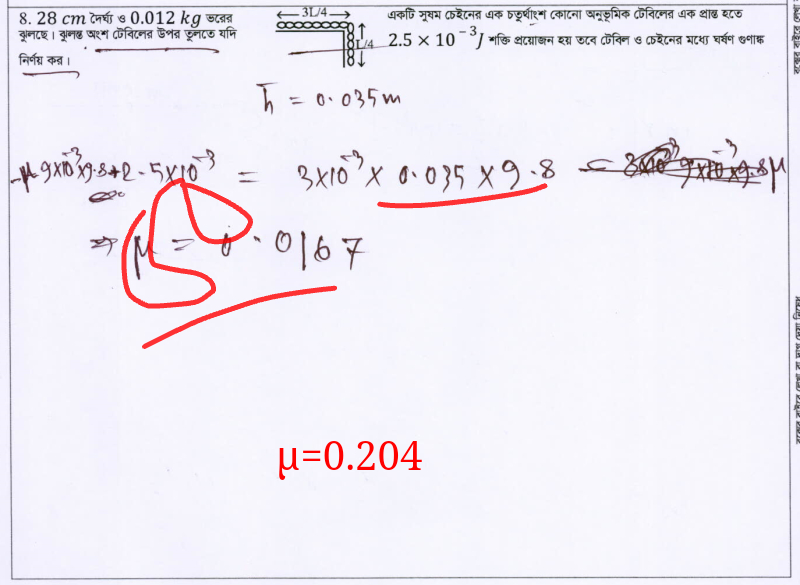 8. 28 cm দৈর্ঘ্য ও 0.012 kg ভরের
একটি সুষম চেইনের এক চতুর্থাংশ কোনো অনুভূমিক টেবিলের এক প্রান্ত হতে
ঝুলছে। ঝুলন্ত অংশ টেবিলের উপর তুলতে যদি
2.5 × 10⁻³J শক্তি প্রয়োজন হয় তবে টেবিল ও চেইনের মধ্যে ঘর্ষণ গুণাঙ্ক
নির্ণয় কর।
3L/4
L/4
h̄ = 0.035m
-μ 9×10⁻³×9.8+2.5×10⁻³ = 3×10⁻³ × 0.035 × 9.8
⇒ μ = 0.0167
μ=0.204